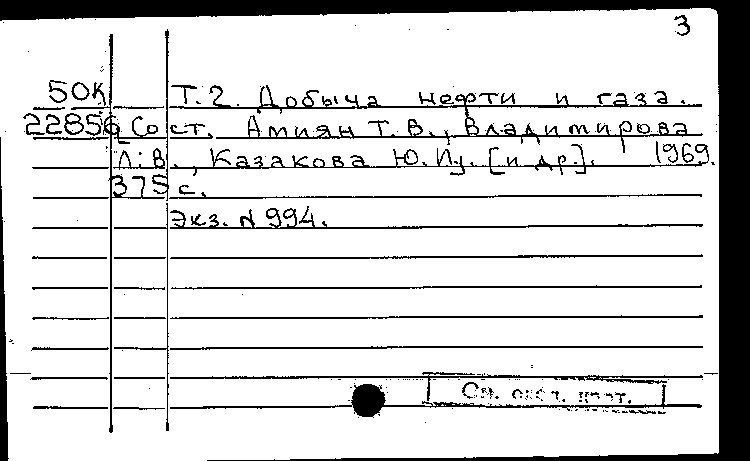 3
50К Т.2. Добыча нефти и газа.
22856 Сост. Амиян Т.В., Владимирова
Л.В., Казакова Ю.Иу. [и др]. 1969.
375 с.
Экз. N 994.
См.